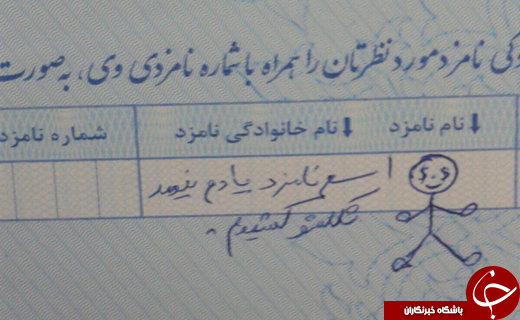 کی نامزد مورد نظرتان را همراه با شماره نامزدی وی، به صورت
⬇نام نامزد ⬇نام خانوادگی نامزد شماره نامزد
اسم نامزد یادم نیومد
شکلشو کشیدم.
باشگاه خبرنگاران